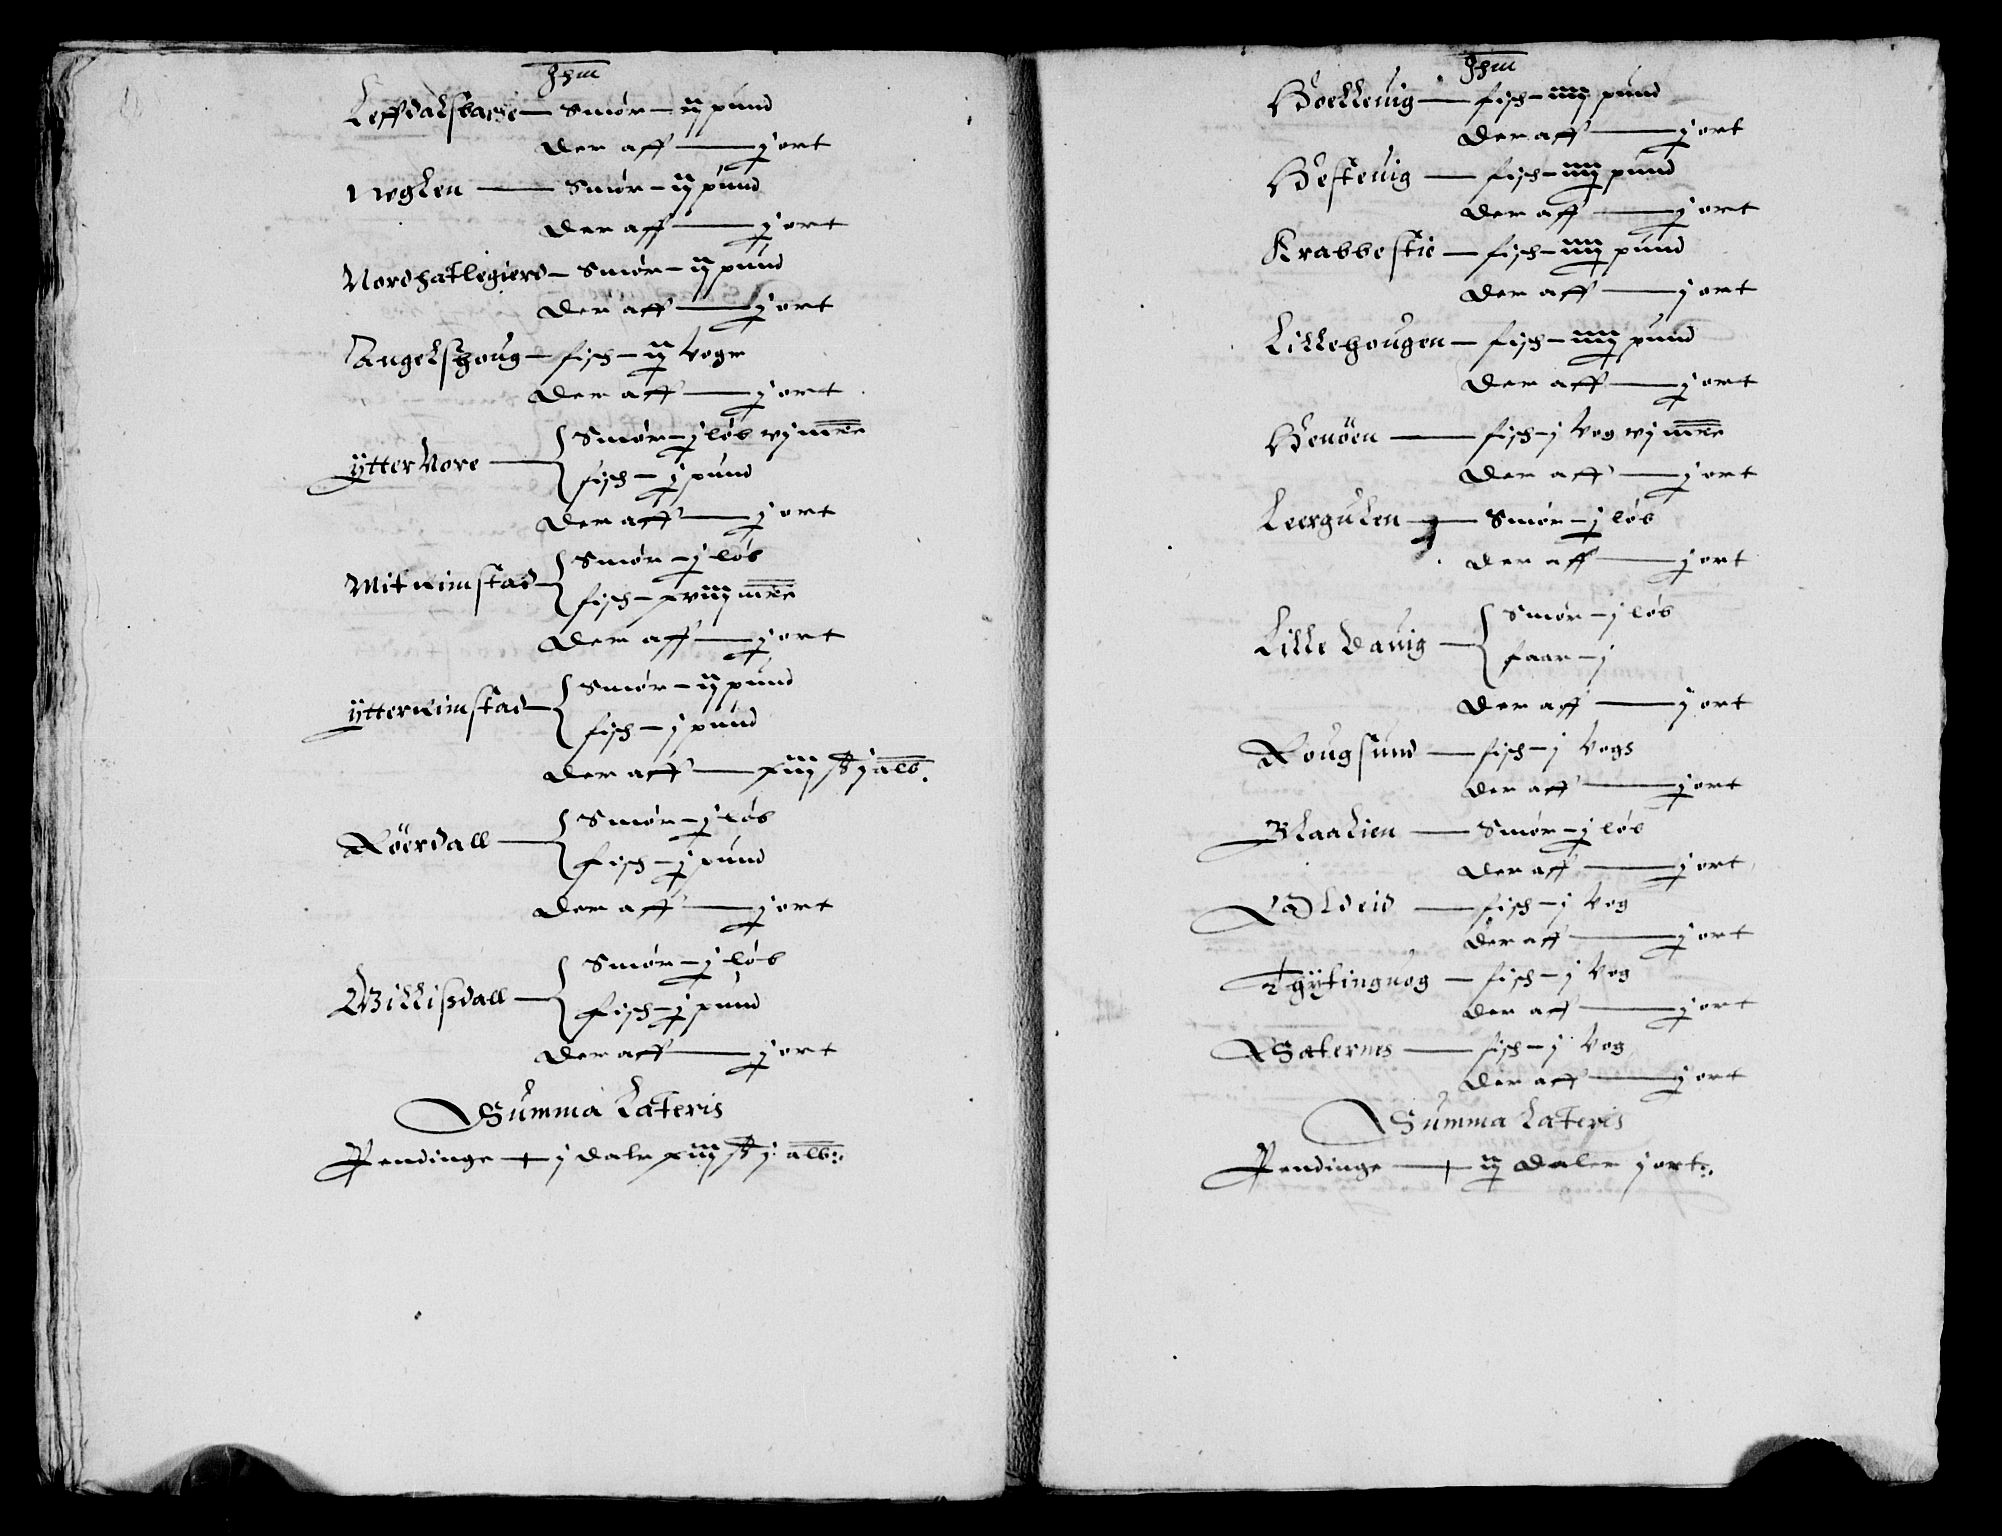 Jhm
Leffdalsbache — Smør — ij pund
Der aff — j ort
Nøglen — Smør — ij pund
Der aff — j ort
Nordhatlegierd — Smør — ij pund
Der aff — j ort
Angelshoug — fisch — ij Voger
Der aff — j ort
Ytter Nore — Smør — j løb vj mrk
fisch — j pund
Der aff — j ort
Mit Rimstad — Smør — j løb
fisch — xviij mrk
Der aff — j ort
Ytter Rimstad — Smør — ij pund
fisch — j pund
Der aff — xiij ß j alb.
Röerdall — Smør — j løb
fisch — j pund
Der aff — j ort
Willißdall — Smør — j løb
fisch — j pund
Der aff — j ort
Summa Lateris
Pendinge — j dalr xiij ß j alb:
Jhm
Hoelleuig — fisch — iiij pund
Der aff — j ort
Hesteuig — fisch — iiij pund
Der aff — j ort
Krabbestie — fisch — iiij pund
Der aff — j ort
Lillehougen — fisch — iiij pund
Der aff — j ort
Henöen — fisch — j Vog vj mrk
Der aff — j ort
Leergulen — Smør — j løb
Der aff — j ort
Lille Dauig — Smør — j løb
faar — j
Der aff — j ort
Rougsund — fisch — j Vog
Der aff — j ort
Blaalien — Smør — j løb
Der aff — j ort
Aldeid — fisch — j Vog
Der aff — j ort
Thytinguog — fisch — j Vog
Der aff — j ort
Saternes — fisch — j Vog
Der aff — j ort
Summa Lateris
Pendinge — iij daler j ort: